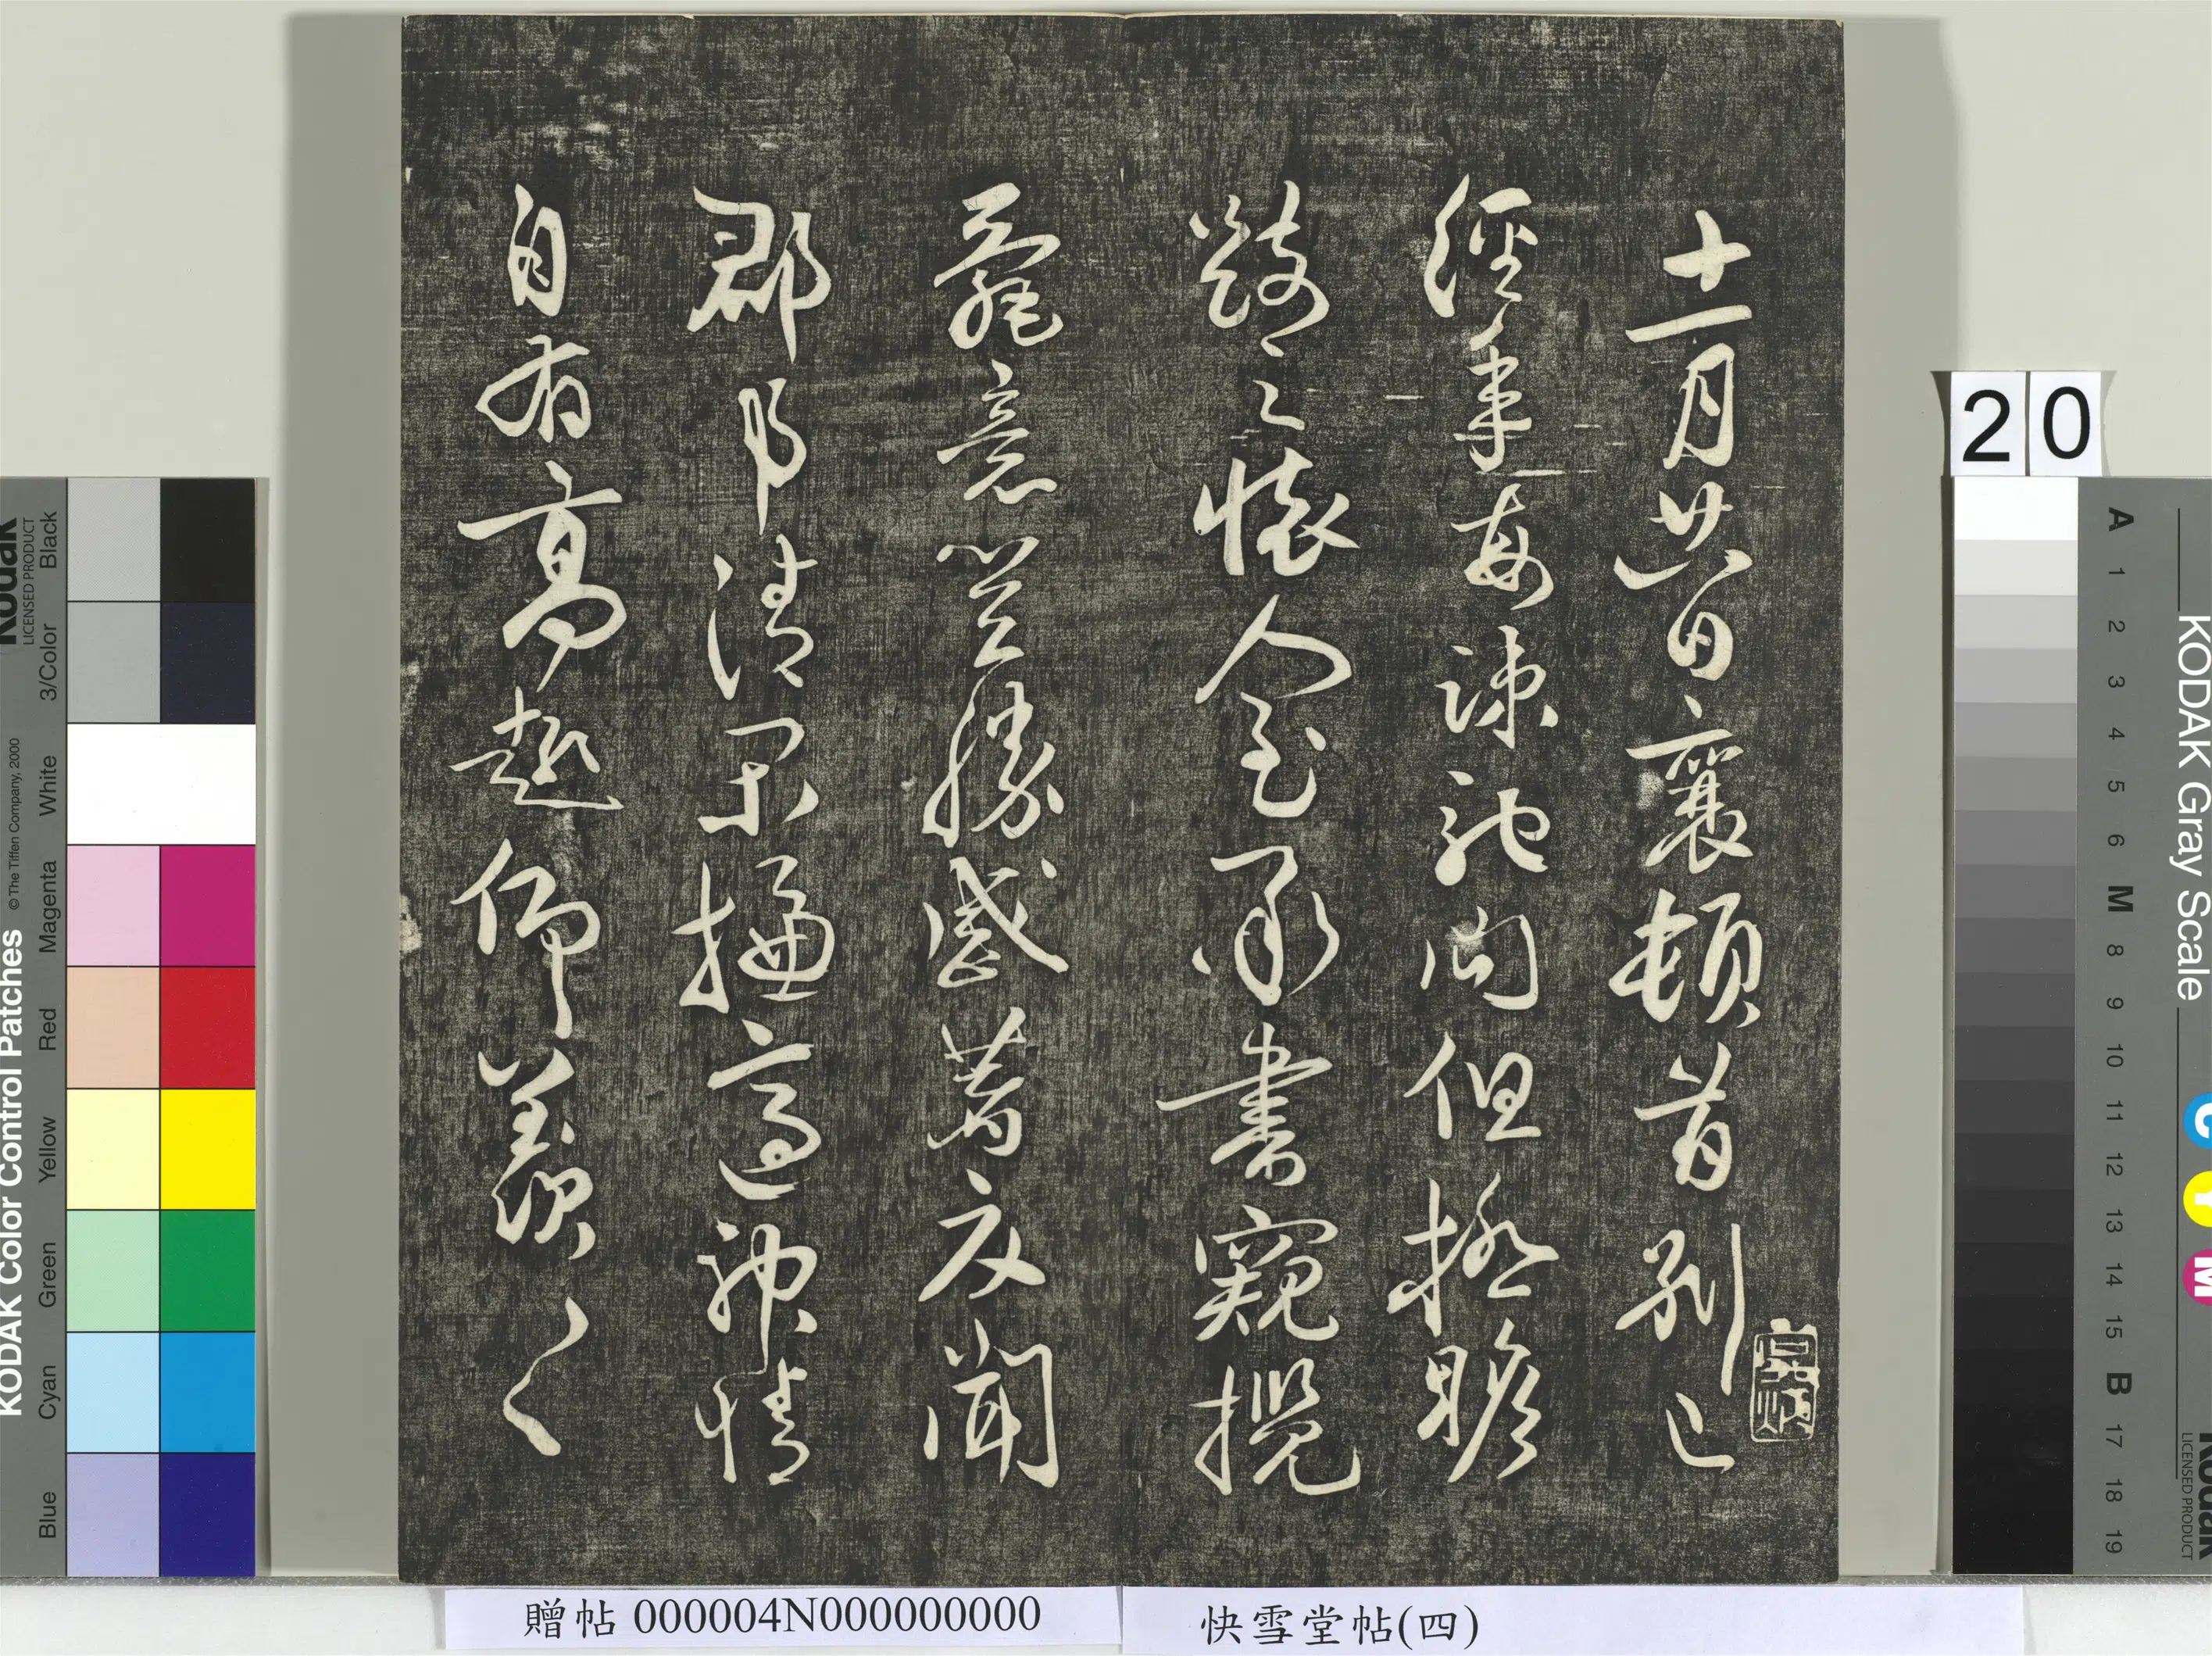 十一月廿八日襄頓首別已
經年每疎馳問但極瞻
跂之懷人至承書窺攬
寵意豈勝感著聞
郡清閑適神情
自有高趣仰羨〱
20
快雪堂帖(四)
贈帖 000004N000000000
KODAK Gray Scale
A 1 2 3 4 5 6 M 8 9 10 11 12 13 14 15 B 17 18 19
C Y M
Kodak
LICENSED PRODUCT
KODAK Color Control Patches
© The Tiffen Company, 2000
Kodak
LICENSED PRODUCT
Blue Cyan Green Yellow Red Magenta White 3/Color Black